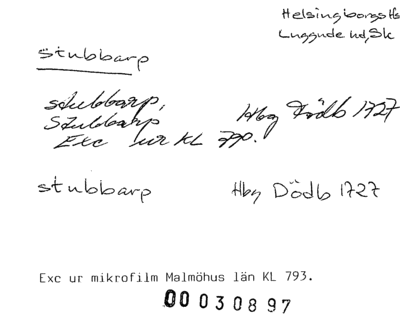 Helsingborgs lfs
Luggude hd, Sk
stubbarp
stubbarp,
Stubbarp Hbg Dödb 1727
Exc ur KL 790.
stubbarp Hbg Dödb 1727
Exc ur mikrofilm Malmöhus län KL 793.
00030897